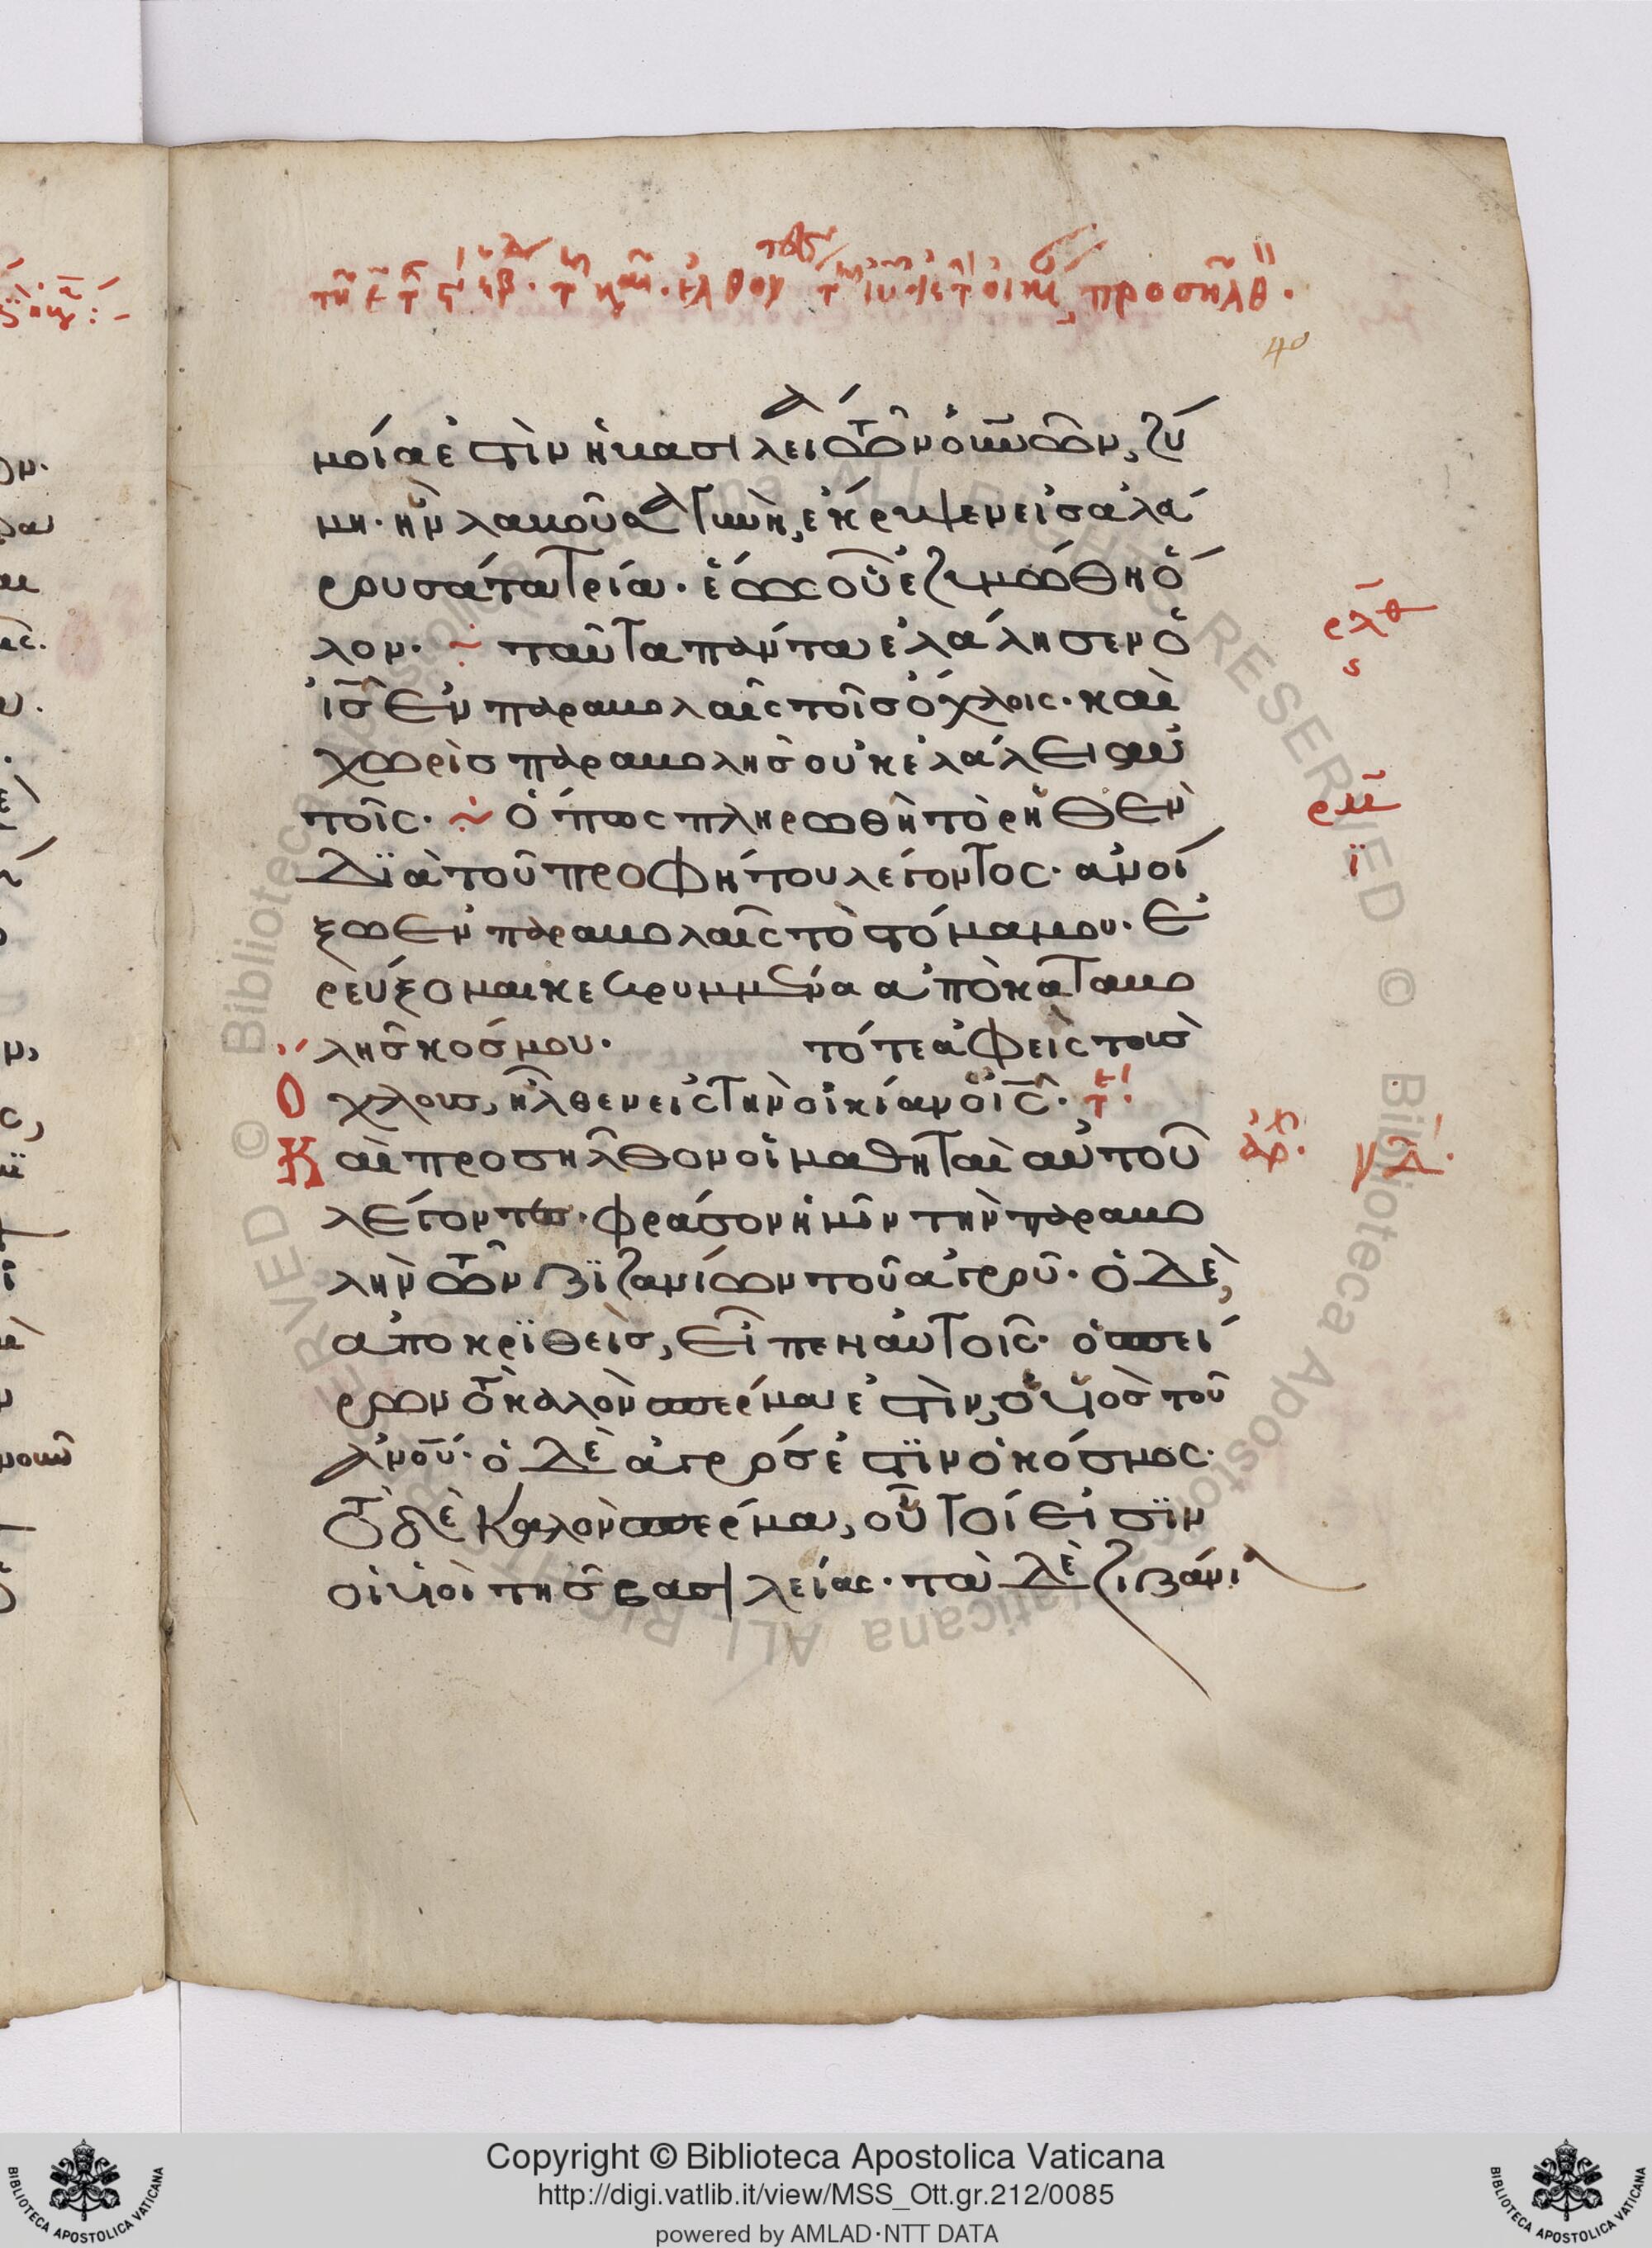 40
μοία ἐστὶν ἡ βασιλεία τῶν οὐνῶν, ζύ
μη· ἣν λαβοῦσα γυνὴ, ἐνέκρυψεν εἰς ἀλεύ
ρου σάτα τρία· ἕως οὗ ἐζυμώθη ὅ
λον· ταῦτα πάντα ἐλάλησεν ὁ
ἰς ἐν παραβολαῖς τοῖς ὄχλοις· καὶ
χωρὶς παραβολῆς οὐκ ἐλάλει αὐ
τοῖς· ὅπως πληρωθῆ τὸ ῥηθὲν
διὰ τοῦ προφήτου λέγοντος· ἀνοί
ξω ἐν παραβολαῖς τὸ στόμα μου· ἐ
ρεύξομαι κεκρυμμένα ἀπὸ καταβο
λῆς κόσμου· τότε ἀφεὶς τοὺς
ὄχλους, ἦλθεν εἰς τὴν οἰκίαν ὁ ἰς·
Καὶ προσῆλθον οἱ μαθηταὶ αὐτοῦ
λέγοντες· φράσον ἡμῖν τὴν παραβο
λὴν τῶν ζιζανίων τοῦ ἀγροῦ· ὁ δὲ,
ἀποκριθεὶς, εἶπεν αὐτοῖς· ὁ σπεί
ρων τὸ καλὸν σπέρμα ἐστὶν, ὁ υἱὸς τοῦ
ἀνου· ὁ δὲ ἀγρός ἐστιν ὁ κόσμος·
τὸ δὲ καλὸν σπέρμα, οὗτοί εἰσιν
οἱ υἱοὶ τῆς βασιλείας· τὰ δὲ ζιζάνια
ρλθ
ς
ρμ
ϊ
Copyright © Biblioteca Apostolica Vaticana
http://digi.vatlib.it/view/MSS_Ott.gr.212/0085
powered by AMLAD·NTT DATA